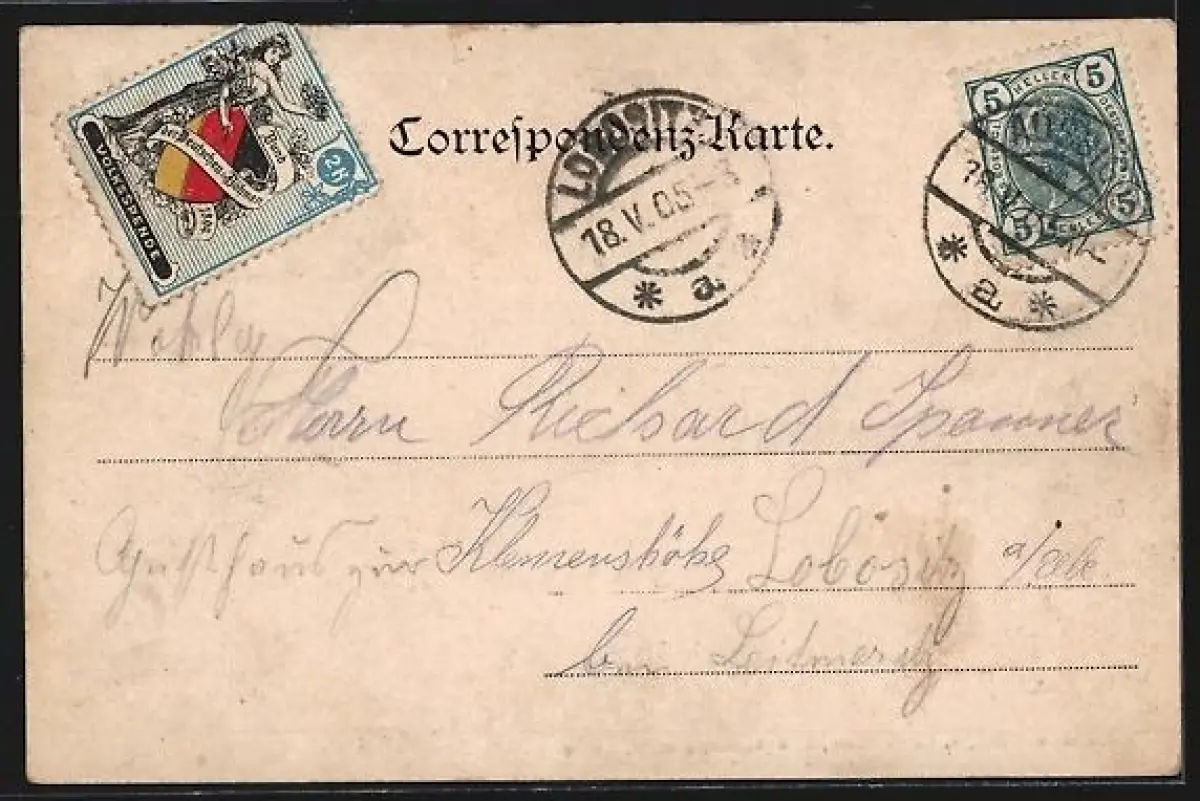 Correspondenz-Karte.
VOLKSSPENDE
Bund der Deutschen
2h
LOBOSITZ
18.V.05
* a *
5 HELLER 5
5 HELLER 5
* a *
Wohlg
Herrn Richard Spanner
Gasthaus zur Klemenshöhe Lobositz a/Elbe
bei Leitmeritz